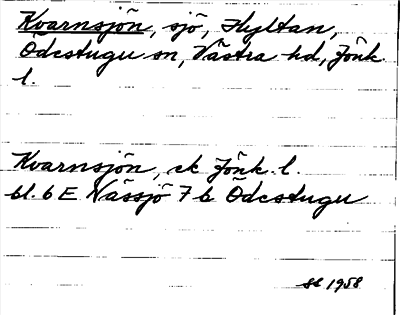 Kvarnsjön, sjö, Hyltan,
Ödestugu sn, Västra hd, Jönk.
l.
Kvarnsjön, ek Jönk. l.
bl. 6 E Nässjö 7 b Ödestugu
1958